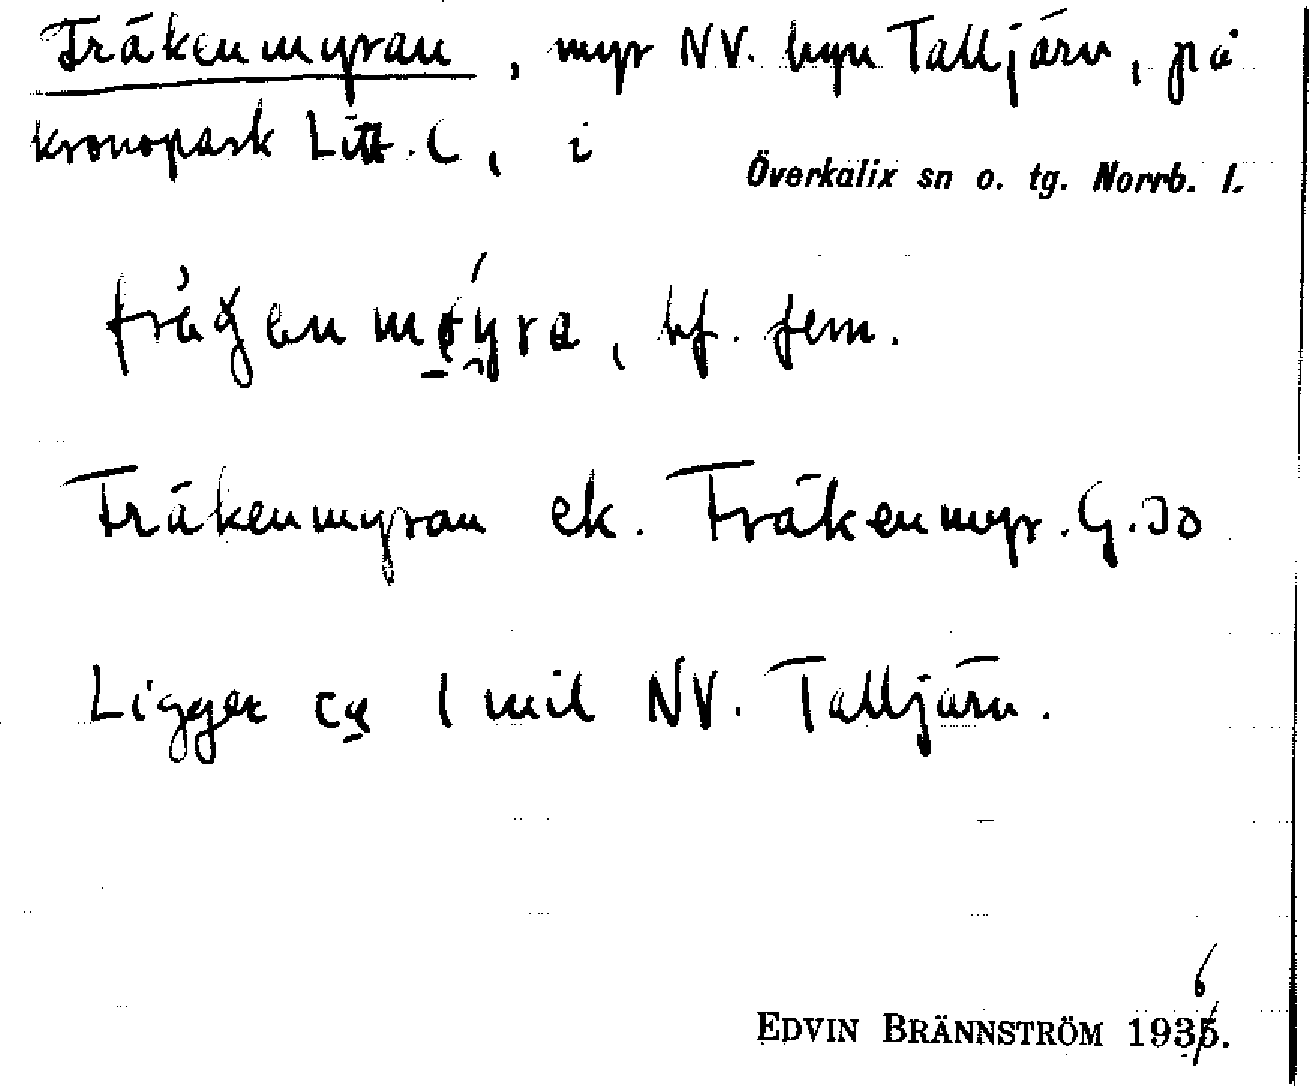 Fräkenmyran, myr NV. byn Talljärv, på
kronopark Litt. C, i
Överkalix sn o. tg. Norrb. l.
bf. fem.
Fräkenmyran ek. Fräkenmyr. G.
Ligger ca 1 mil NV. Talljärv.
6
EDVIN BRÄNNSTRÖM 1935.